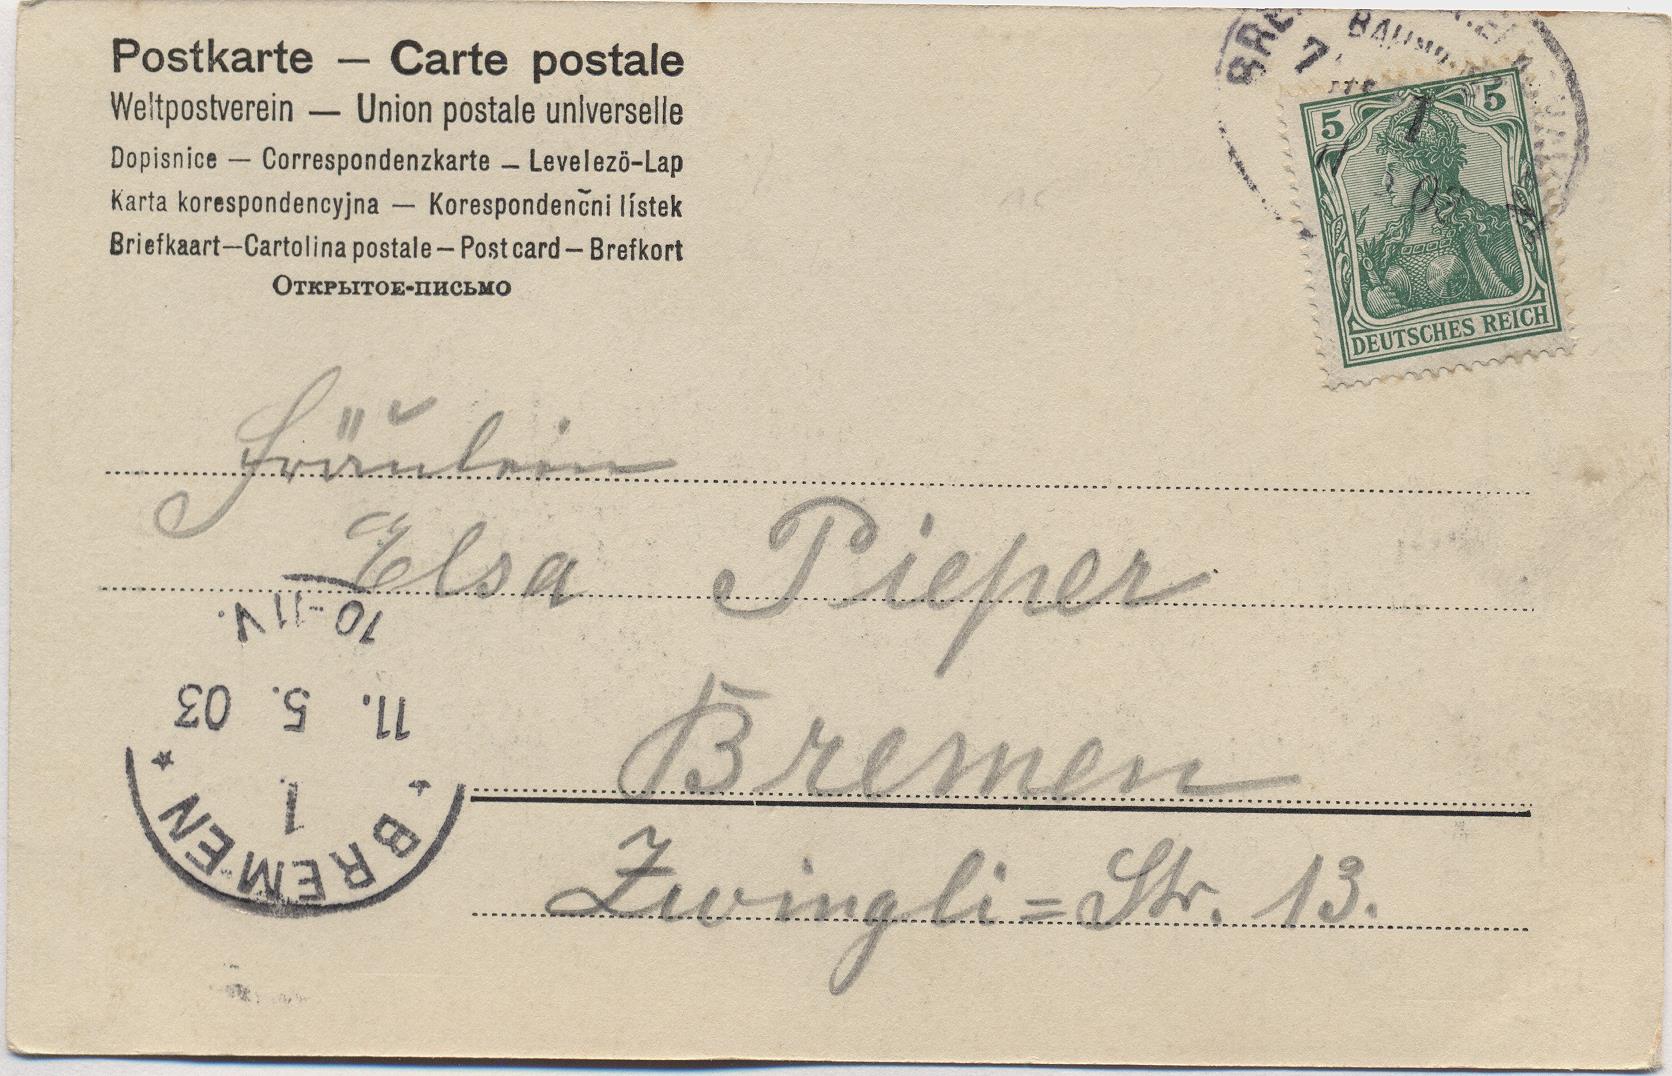 Postkarte — Carte postale
Weltpostverein — Union postale universelle
Dopisnice — Correspondenzkarte — Levelezö-Lap
Karta korespondencyjna — Korespondenčni lístek
Briefkaart—Cartolina postale—Post card—Brefkort
Открытое-письмо
5 5
DEUTSCHES REICH
Fräulein
Elsa Pieper
Bremen
Zwingli=Str. 13.
BREMEN
1
11. 5. 03
10-11V.